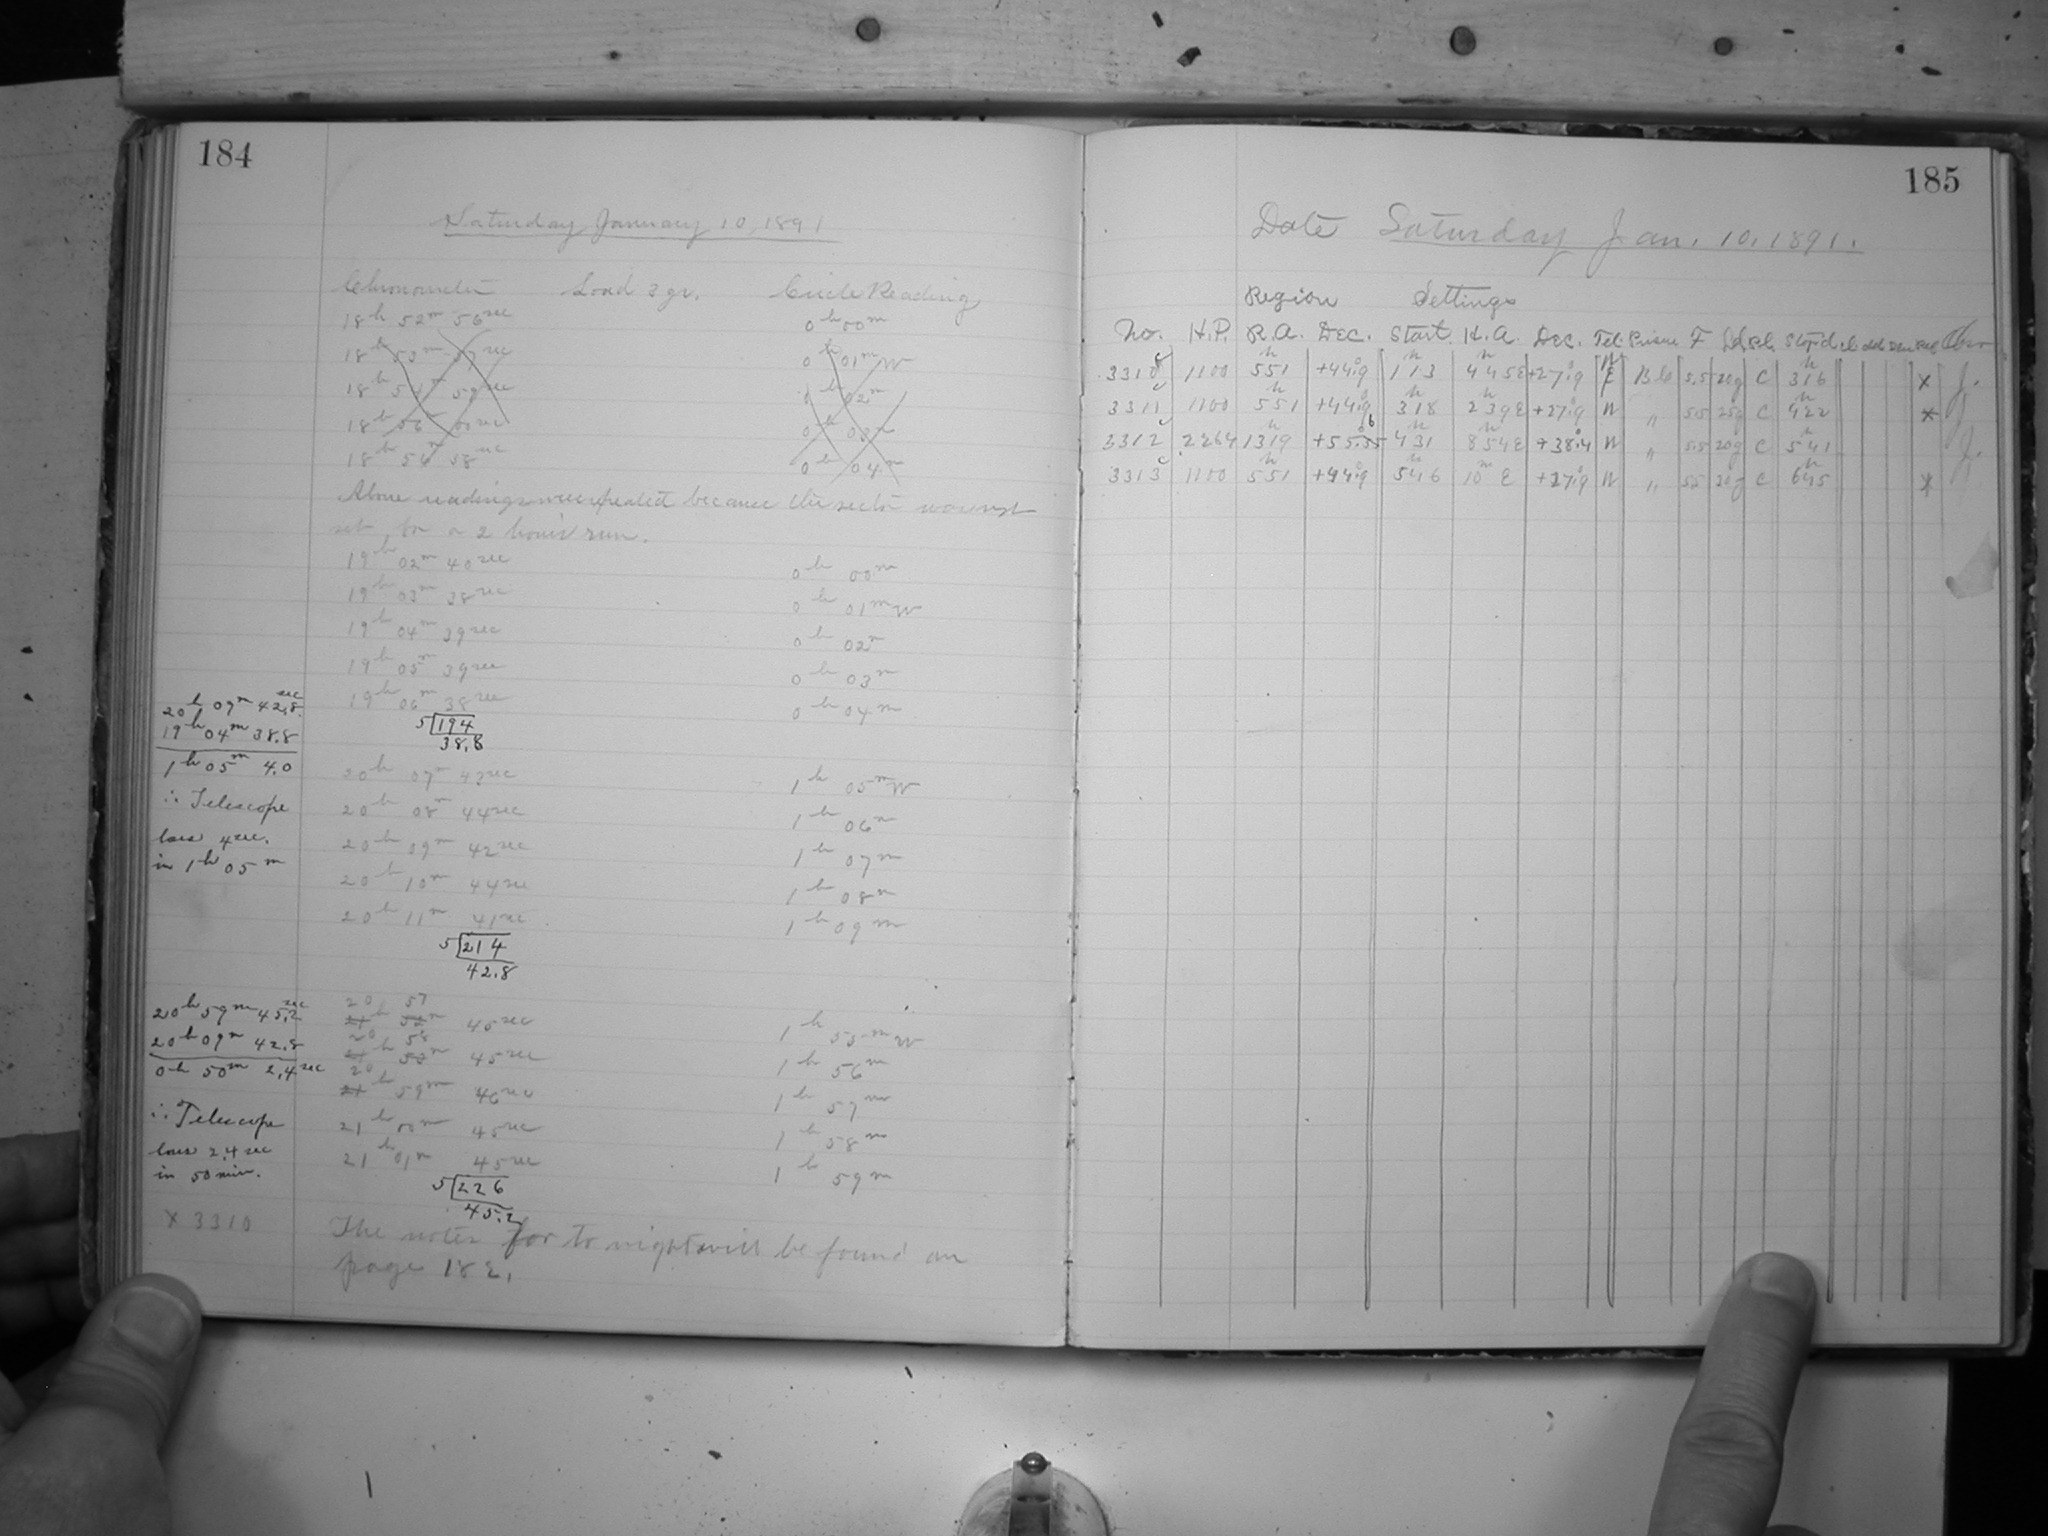 184
Saturday January 10, 1891
Chronometer Load 3 gr. Circle Reading
18h 52m 56sec 0h 00m
18h 53m 57sec 0h 01m W
18h 54m 59sec 1h 02m
18h 56m 00sec 0h 03m
18h 56m 58sec 0h 04m
Above readings were repeated because the sector was not
set for a 2 hours run.
19h 02m 40sec 0h 00m
19h 03m 38sec 0h 01m W
19h 04m 39sec 0h 02m
19h 05m 39sec 0h 03m
19h 06m 38sec 0h 04m
5 194
38.8
20h 09m 42.8sec
19h 04m 38.8
1h 05m 4.0
∴ Telescope
loses 4 sec.
in 1h 05m
20h 07m 43sec 1h 05m W
20h 08m 44sec 1h 06m
20h 09m 42sec 1h 07m
20h 10m 44sec 1h 08m
20h 11m 41sec 1h 09m
5 214
42.8
20h 59m 45.2sec
20h 09m 42.8
0h 50m 2.4sec
∴ Telescope
loses 2.4 sec
in 50 min.
20 57
45sec 1h 55m W
20 58
45sec 1h 56m
20
59m 46sec 1h 57m
21h 00m 45sec 1h 58m
21h 01m 45sec 1h 59m
5 226
45.2
x 3310
The notes for to night will be found on
page 182.
185
Date Saturday Jan. 10, 1891.
Region Settings
No. H.P. R.A. Dec. Start H.A. Dec. Tel. Prism F Ld Pl. Stop'd Obsr
3310 1100 551 +44.9 113 445E +27.9 E Bl 5.5 20g C 316 x J.
3311 1100 551 +44.9 318 239E +27.9 W " 5.5 25g C 422 x
3312 2264 1319 +55.35 431 854E +38.4 W " 5.5 20g C 541 J.
3313 1100 551 +44.9 546 10m E +27.9 W " 5.5 20g C 645 x